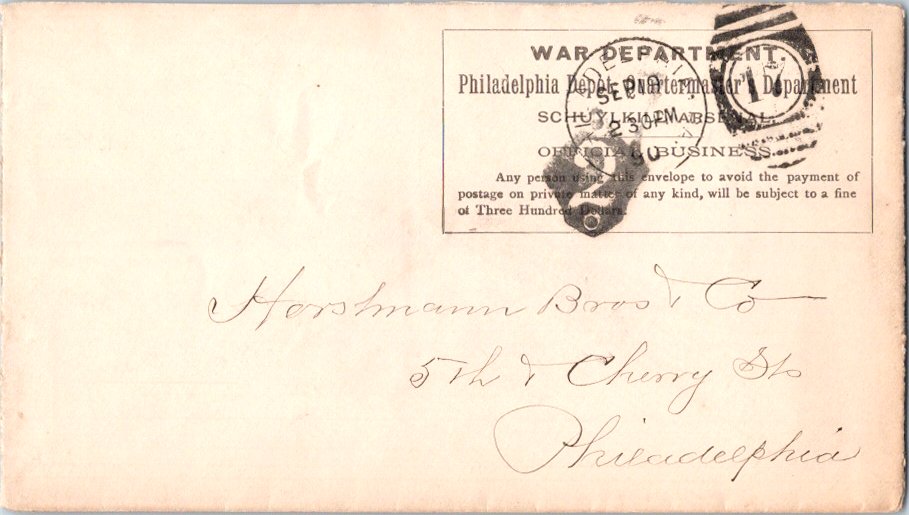 WAR DEPARTMENT.
Philadelphia Depot Quartermaster's Department
SCHUYLKILL ARSENAL.
OFFICIAL BUSINESS.
Any person using this envelope to avoid the payment of
postage on private matter of any kind, will be subject to a fine
of Three Hundred Dollars.
PHILADELPHIA
SEP
2 30PM
17
Horstmann Bros & Co
5th & Cherry Sts
Philadelphia